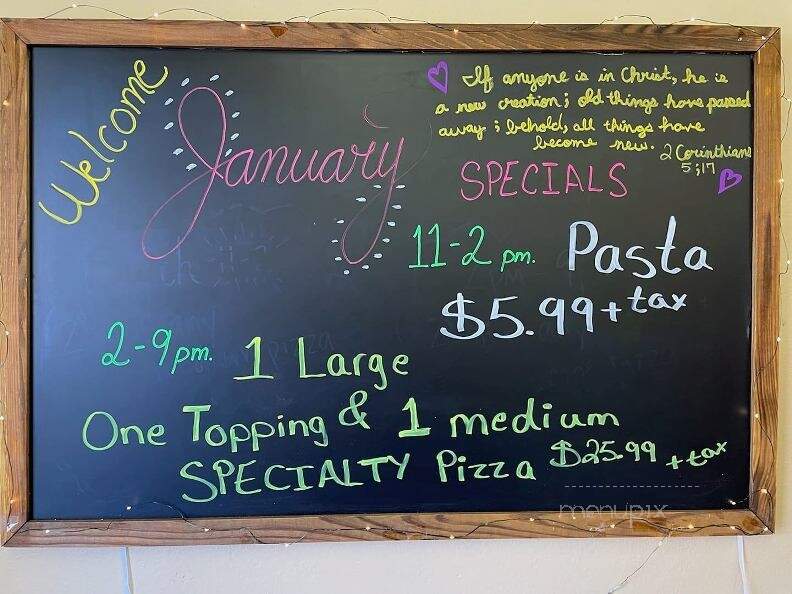 Welcome
January
If anyone is in Christ, he is
a new creation; old things have passed
away; behold, all things have
become new.
2 Corinthians
5;17
SPECIALS
11-2 pm. Pasta
$5.99 + tax
2-9 pm. 1 Large
One Topping & 1 medium
SPECIALTY Pizza $25.99 + tax
menupix